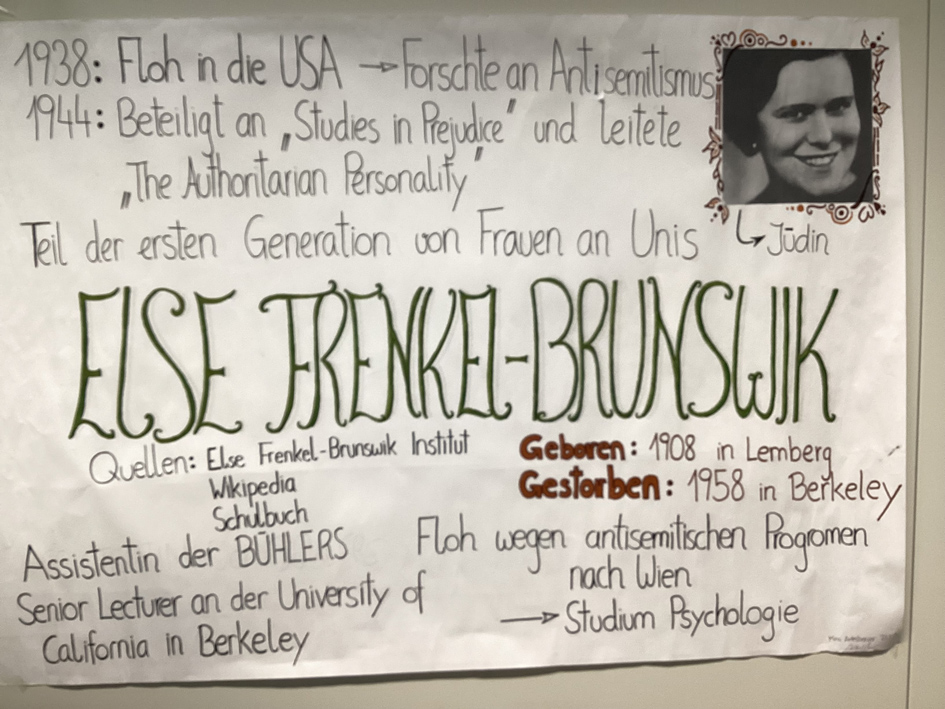 1938: Floh in die USA → Forschte an Antisemitismus
1944: Beteiligt an „Studies in Prejudice" und leitete
„The Authoritarian Personality"
Teil der ersten Generation von Frauen an Unis
↳ Jüdin
ELSE FRENKEL-BRUNSWIK
Quellen: Else Frenkel-Brunswik Institut
Wikipedia
Schulbuch
Geboren: 1908 in Lemberg
Gestorben: 1958 in Berkeley
Assistentin der BÜHLERS
Senior Lecturer an der University of
California in Berkeley
Floh wegen antisemitischen Progromen
nach Wien
→ Studium Psychologie